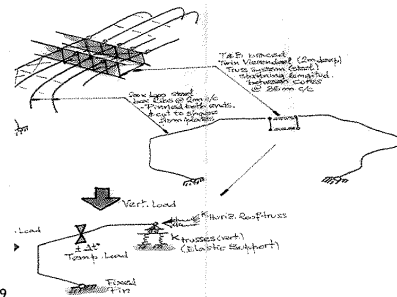 T&B braced
Twin Vierendeel (2m deep)
Truss system (steel)
Spanning longitud.
between cores
@ 86m c/c
steel
box ribs @ 2m c/c
- Pinned both ends.
& cut to shape
from plates
Vert. Load
. Load
K Horiz. Roof truss
K trusses (vert)
(Elastic Support)
± Δt°
Temp. Load
Fixed
Pin
9